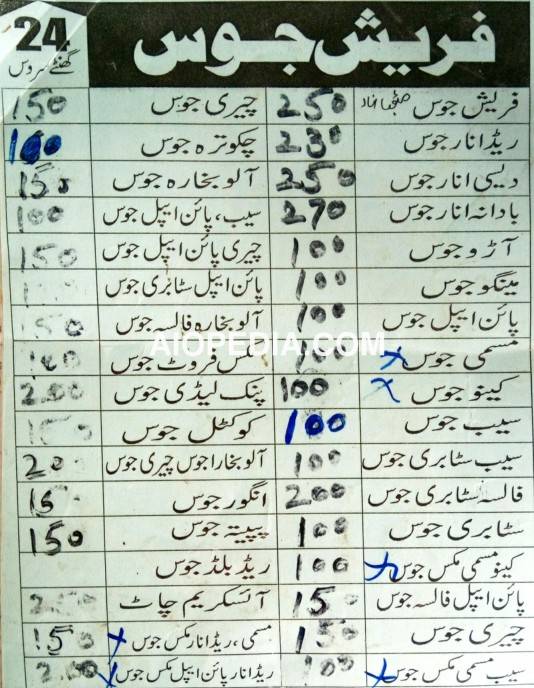 فریش جوس
24
گھنٹے سروس
فریش جوس 250
ریڈ انار جوس 230
دیسی انار جوس 250
بادانہ انار جوس 270
آڑو جوس 100
مینگو جوس 100
پائن ایپل جوس 100
مسمی جوس 100
کینو جوس 100
سیب جوس 100
سیب سٹابری جوس 100
فالسہ سٹابری جوس 200
سٹابری جوس 100
کینو مسمی مکس جوس 100
پائن ایپل فالسہ جوس 150
چیری جوس 150
سیب مسمی مکس جوس 100
چیری جوس 150
چکوترہ جوس 100
آلو بخارہ جوس 150
سیب، پائن ایپل جوس 100
چیری پائن ایپل جوس 150
پائن ایپل سٹابری جوس
آلو بخارہ فالسہ جوس 150
مکس فروٹ جوس 100
پنک لیڈی جوس 200
کوکٹل جوس
آلو بخارا جوس چیری جوس 200
انگور جوس 150
پپیتہ جوس 150
ریڈ بلڈ جوس
آئسکریم چاٹ 250
مسمی، ریڈ انار مکس جوس 150
ریڈ انار پائن ایپل مکس جوس 200
AIOPEDIA.COM